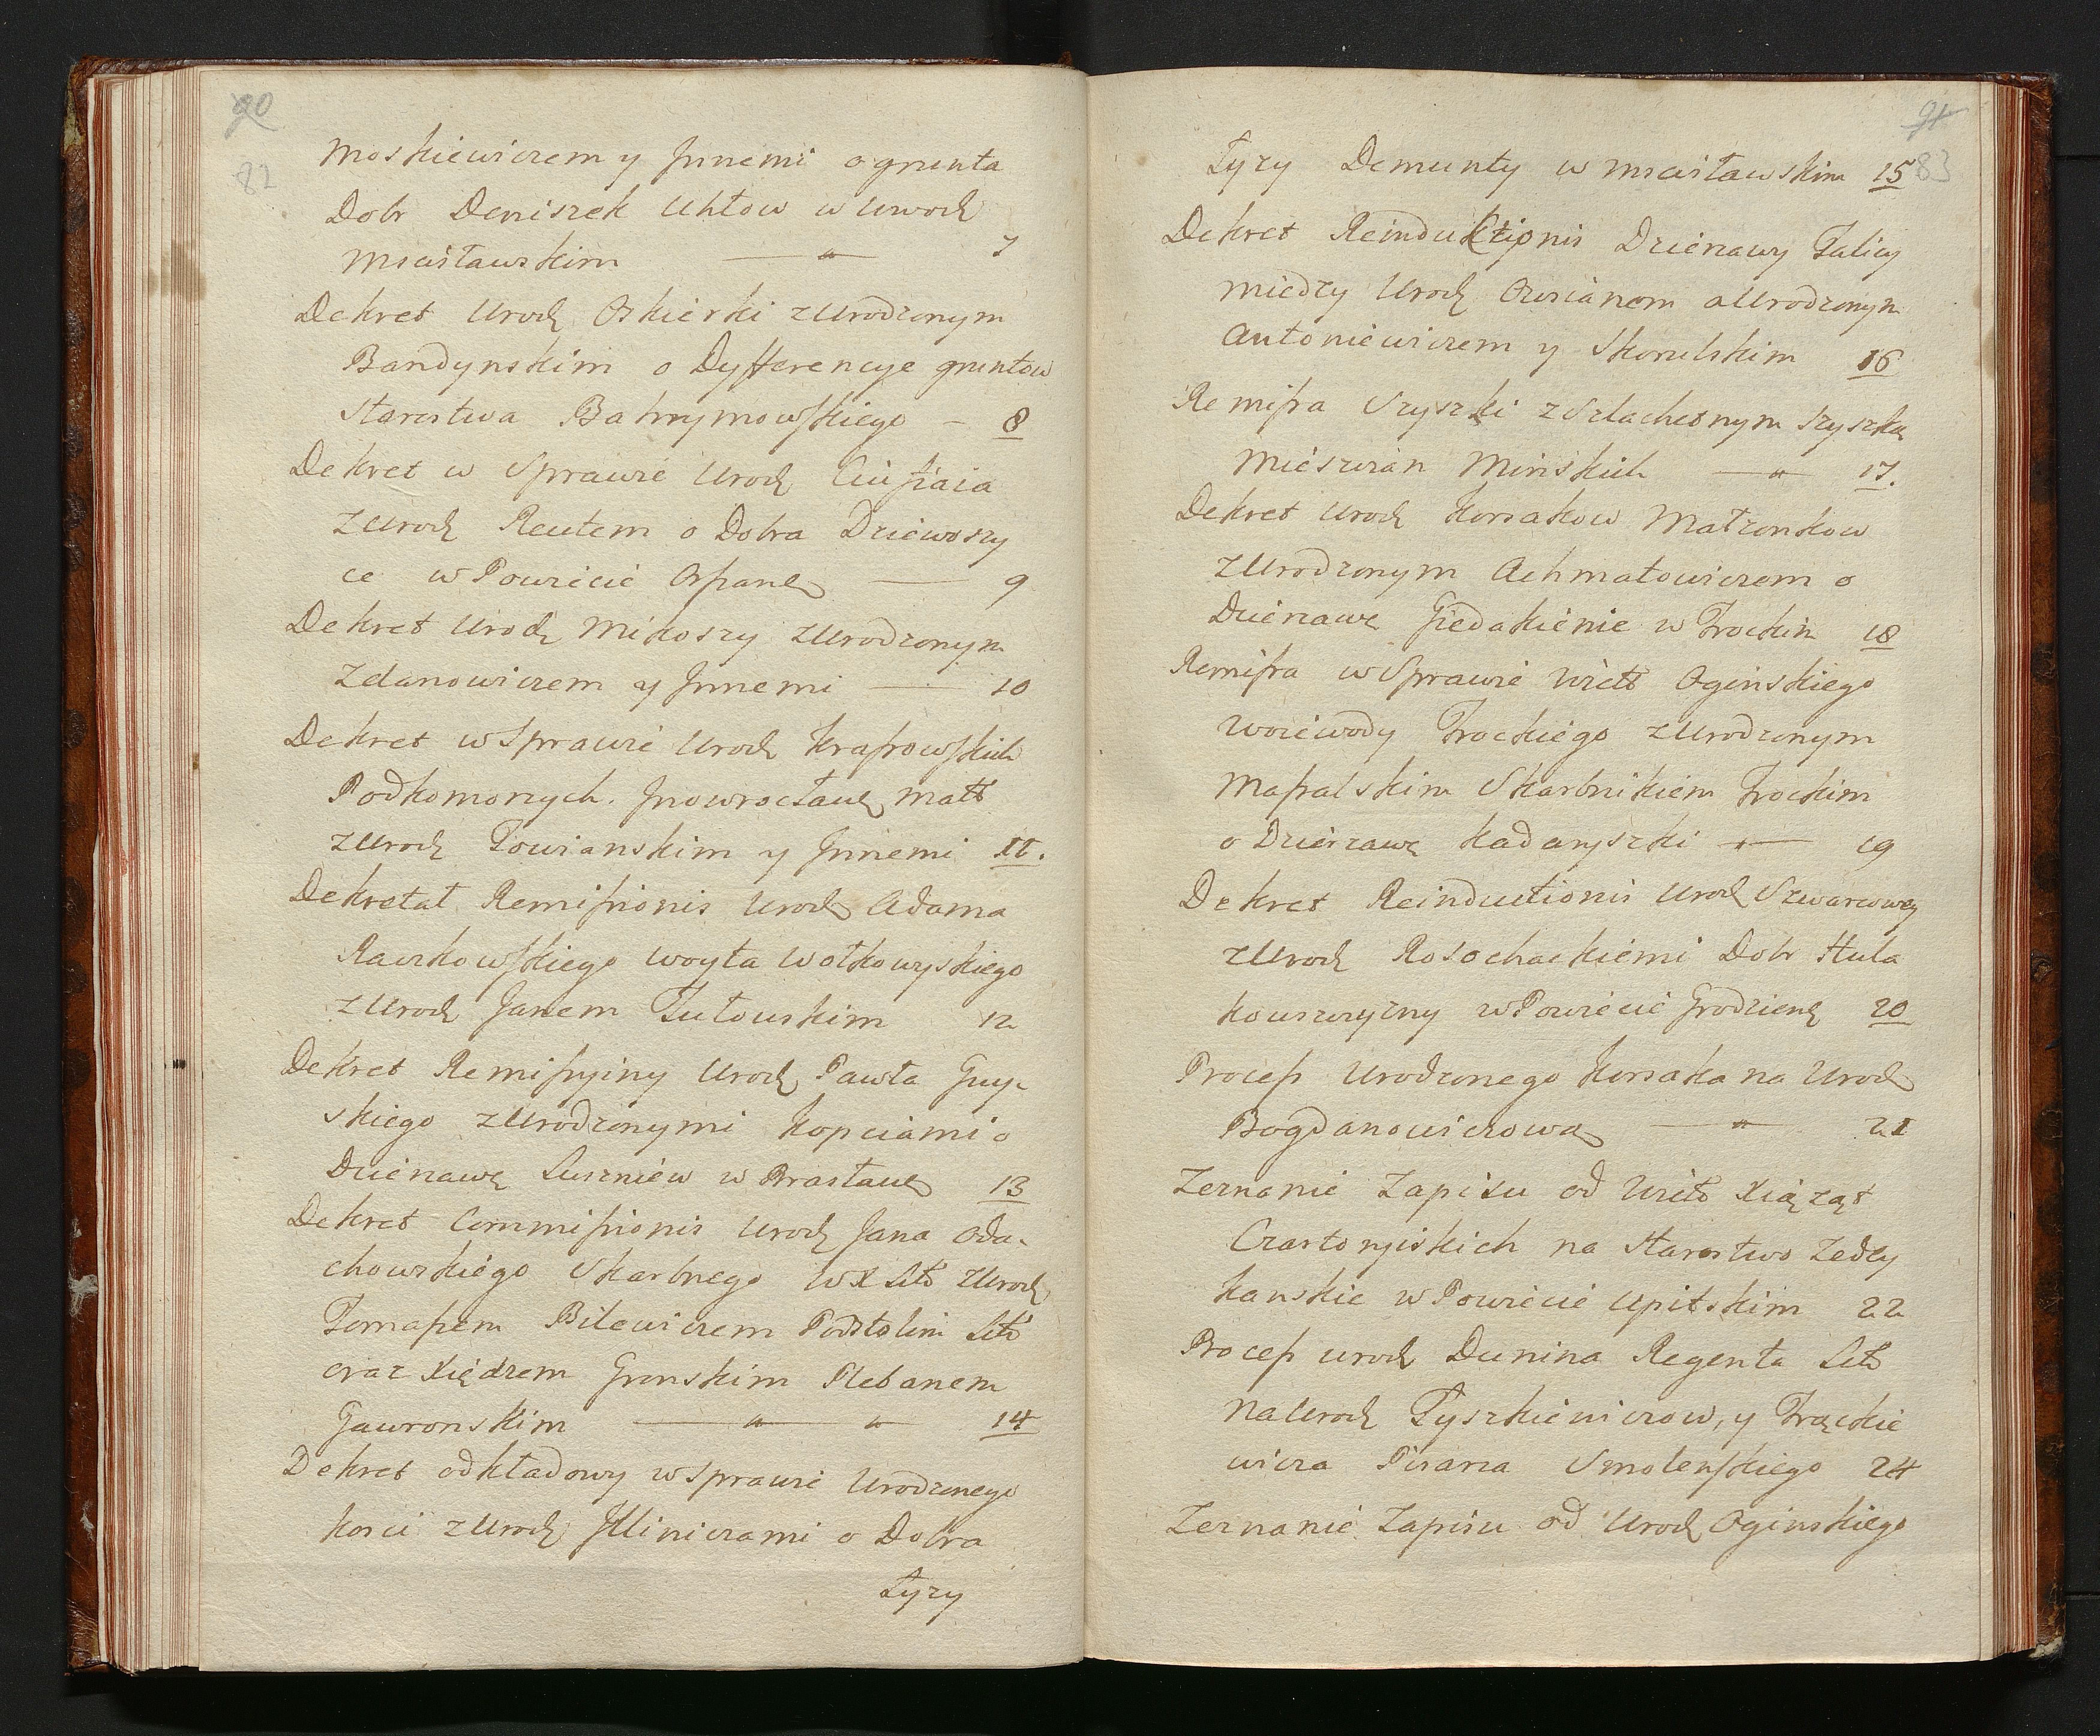 90
82
Moskiewiczem y Jnnemi o grunta
Dobr Deniszek Uhłow w Uwod
Mscisławskim — " — 7
Dekret Urod Oskierki z Urodzonym
Bandynskim o Dyfferencye gruntow
Starostwa Bahrymowskiego — 8
Dekret w Sprawie Urod
z Urod Reutem o Dobra Dziewoszy
ce w Powiecie Oszman — 9
Dekret Urod Mikoszy z Urodzonym
Zdanowiczem y Jnnemi — 10
Dekret w Sprawie Urod Krassowskich
Podkomorzych Jnowrocław Małż
z Urod Towianskim y Jnnemi 11.
Dekretal Remissionis Urod Adama
Raczkowskiego Woyta Wołkowyskiego
z Urod Janem Tutowskim 12
Dekret Remissyiny Urod Pawła Guy-
skiego z Urodzonymi Kopciami o
Dzierzawę Luszniew w Brasław 13
Dekret Commissionis Urod Jana Oda-
chowskiego Skarbnego W X Litt z Urod
Tomaszem Bilewiczem Podstolim Litt
oraz Xiędzem Gronskim Plebanem
Gawronskim — " " — 14
Dekret odkładowy w Sprawie Urodzonego
Kosci z Urod Jlliniczami o Dobra
Łyzy
91
83
Łyzy Demunty w Mscisławskim 15
Dekret Reinduktionis Dzierzawy Talicy
miedzy Urod Owsianem a Urodzonym
Antoniewiczem y Skorulskim 16
Remissa Szyszki z Szlachetnym Szyszką
Mieszczan Minskich — " — 17.
Dekret Urod Korsakow Małżonkow
z Urodzonym Achmatowiczem o
Dzierzawę Giedakienie w Trockim 18
Remissa w Sprawie Wielt Oginskiego
Woiewody Trockiego z Urodzonym
Massalskim Skarbnikiem Trockim
o Dzierzawę Kadaryszki — 19
Dekret Reinductionis Urod Szwarcowey
z Urod Rosochackiemi Dobr Hula
kowszczyzny w Powiecie Grodzien 20
Process Urodzonego Korsaka na Urod
Bogdanowiczowa — " — 21
Zeznanie Zapisu od Wielt Xiążąt
Czartoryiskich na Starostwo Zedey
kanskie w Powiecie Upitskim 22
Process Urod Dunina Regenta Litt
na Urod Tyszkiewiczow, y Trąckie
wicza Pisarza Smolenskiego 24
Zeznanie Zapisu od Urod Oginskiego